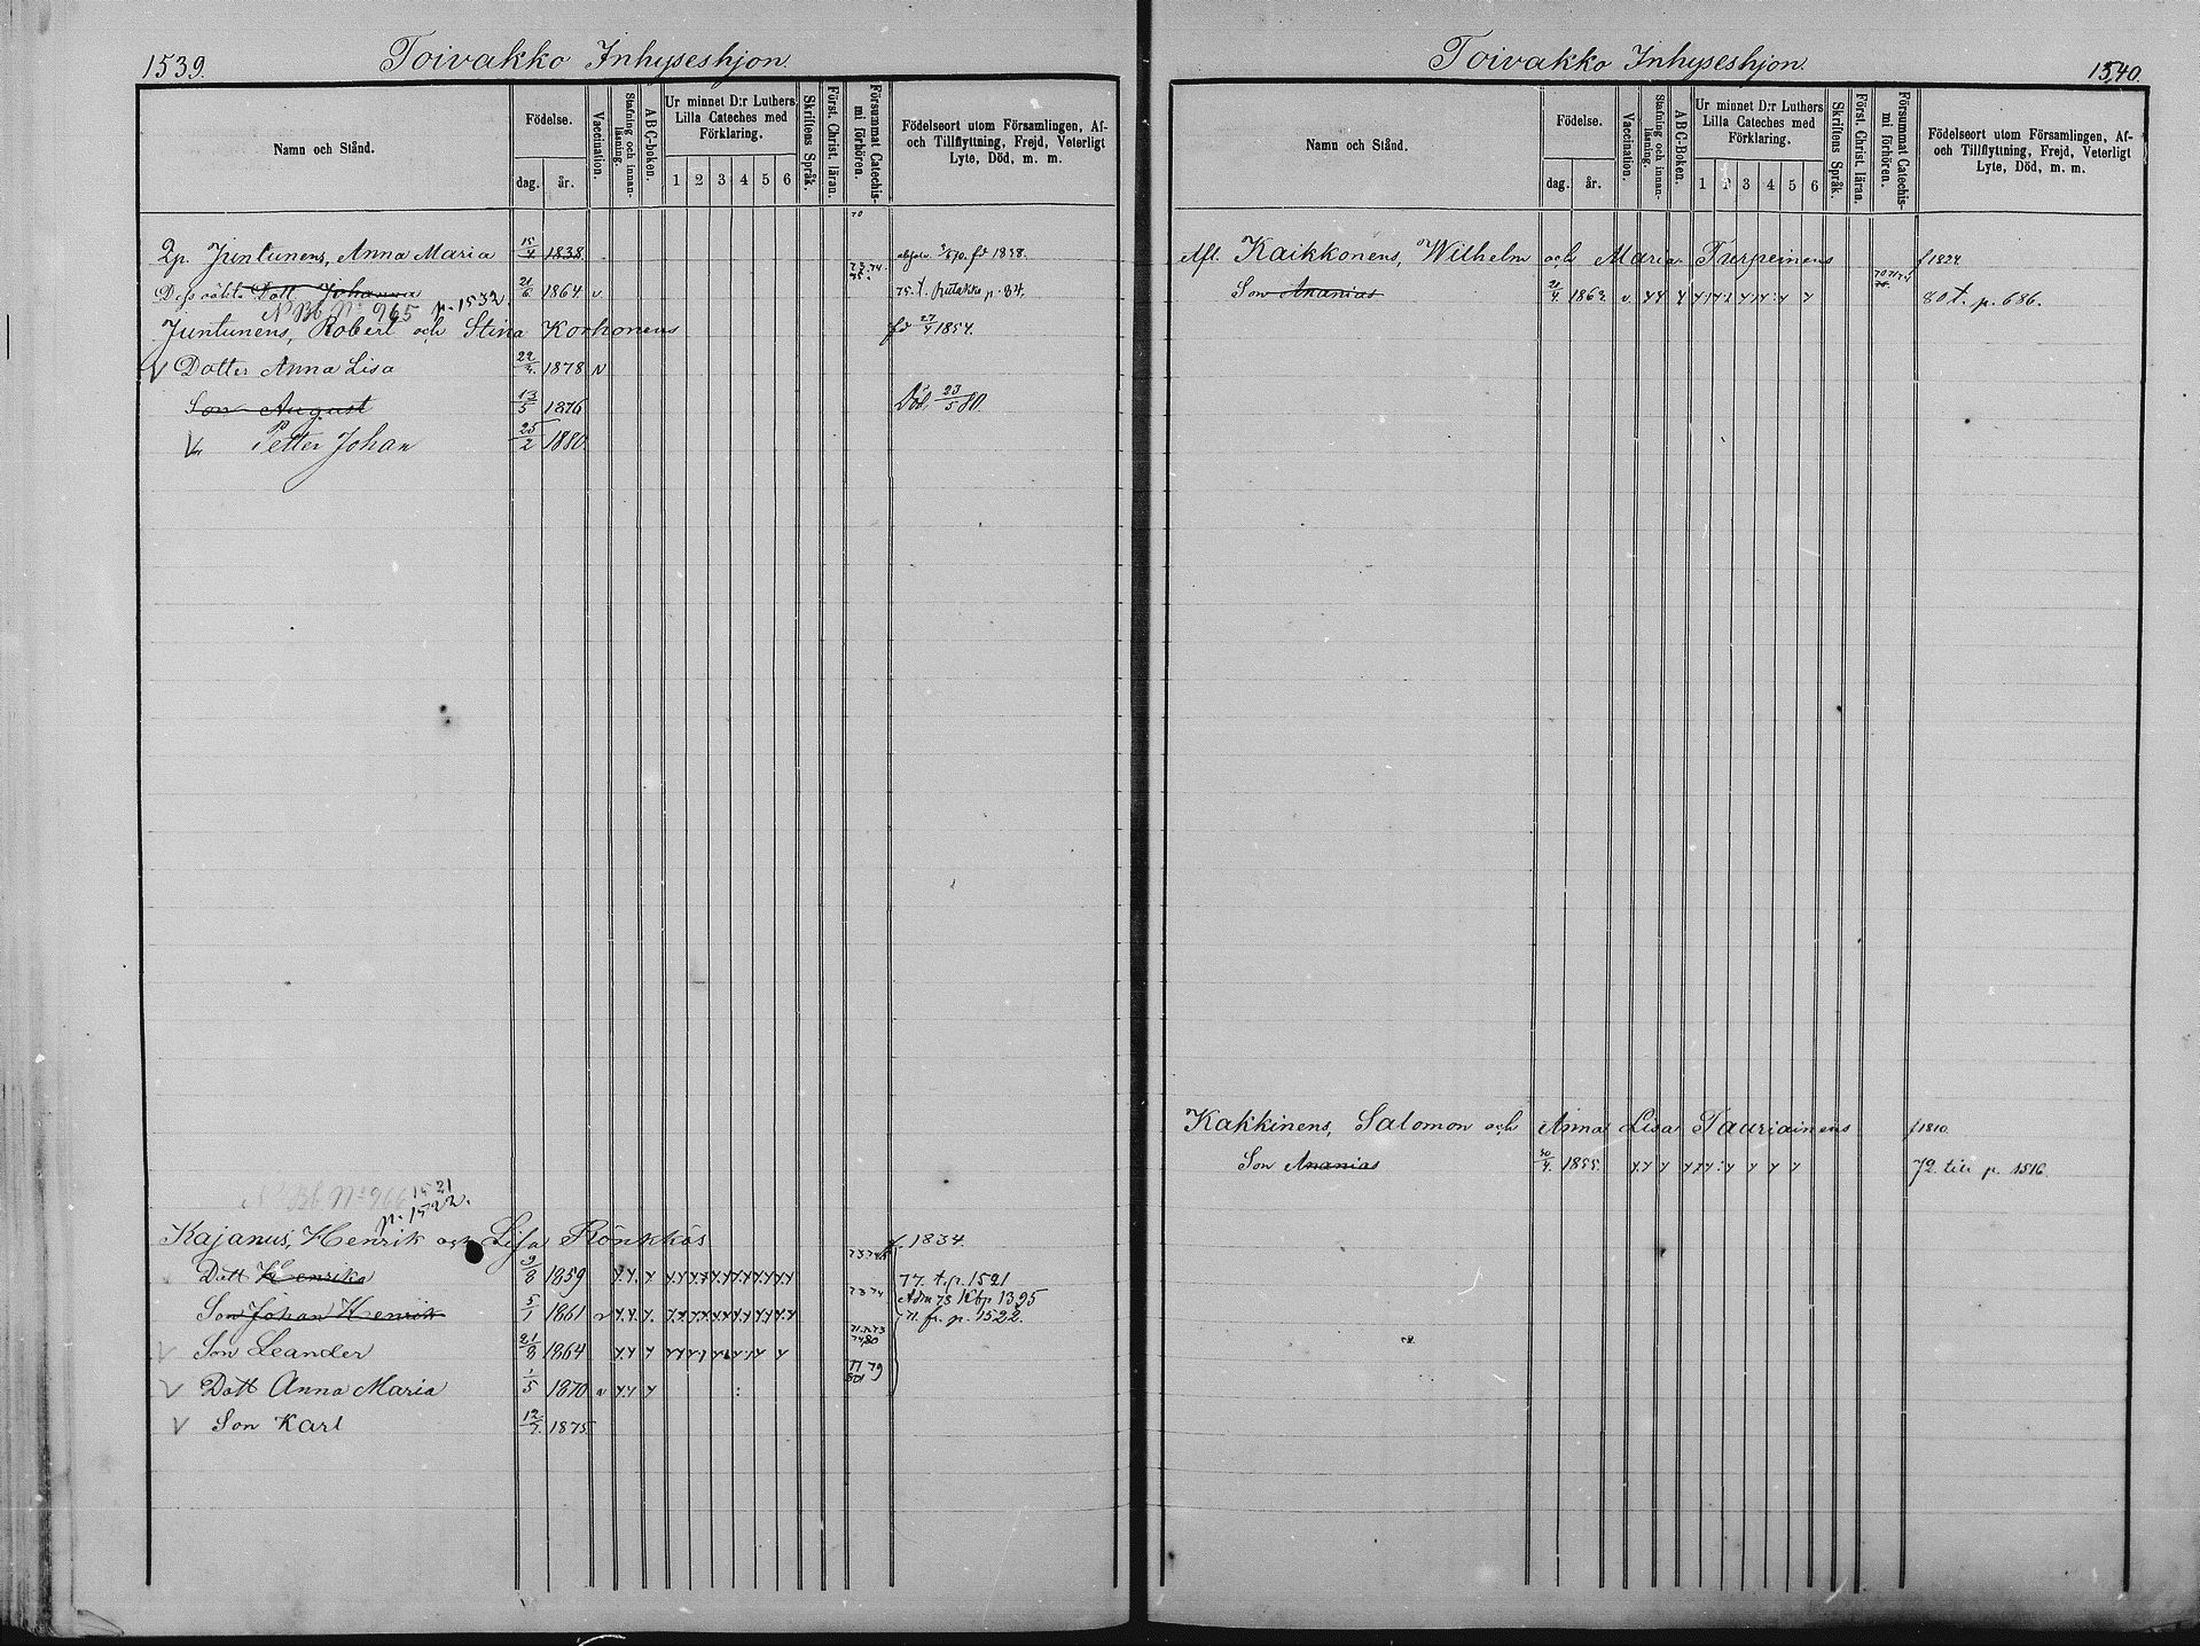 1539.
Toivakko Inhyseshjon.
Namn och Stånd.
Födelse.
dag. år.
Vaccination.
Stafning och innanläsning.
ABC-boken.
Ur minnet D:r Luthers Lilla Cateches med Förklaring.
1 2 3 4 5 6
Skriftens Språk.
Först. Christ. läran.
Försummat Catechismi förhören.
Födelseort utom Församlingen, Af- och Tillflyttning, Frejd, Veterligt Lyte, Död, m. m.
70
Qp. Juntunens, Anna Maria 15/4 1838 fd 1838.
73.74. 75.
Dess oäkta Dott Johanna 21/6. 1864 v. 75. t. p. 84.
N Bb No 965 p. 1532
Juntunens, Robert och Stina Korhonens fd 27/4 1854.
V Dotter Anna Lisa 22/4. 1878 v
Son August 13/5 1876 Död 23/5 80.
V Petter Johan 25/2 1880.
N Bb No 966 1521
p. 1522.
Kajanus, Henrik och Lisa Rönkkös f. 1834.
Dott Henrika 9/8 1859 77. t. p. 1521
Adm 78 Kbp 1395
Son Johan Henrik 5/1 1861 v 73 74 71. fr. p. 1522.
V Son Leander 21/8 1864
V Dott Anna Maria 1/5 1870 v 77 79
V Son Karl 12/7. 1875
Toivakko Inhyseshjon.
1540.
Namn och Stånd.
Födelse.
dag. år.
Vaccination.
Stafning och innanläsning.
ABC-Boken.
Ur minnet D:r Luthers Lilla Cateches med Förklaring.
1 2 3 4 5 6
Skriftens Språk.
Först. Christ. läran.
Försummat Catechismi förhören.
Födelseort utom Församlingen, Af- och Tillflyttning, Frejd, Veterligt Lyte, Död, m. m.
Afl. Kaikkonens, Wilhelm och Maria Turpeinens f 1824
Son Ananias 1862 v 80 t. p. 686.
Kakkinens, Salomon och Anna Lisa Tauriainens f 1810.
Son Ananias 30/4. 1855. 72. till p. 1516.